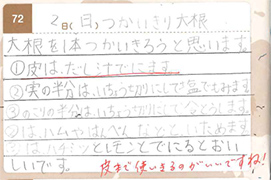 72
2日(日)つかいきり大根
大根を1本つかいきろうと思います。
①皮は、だし汁でにます。
②実の半分は、いちょう切りにして塩でもみます
③のこりの半分は、いちょう切りにして
②は、ハムやはんぺんなどと、いためます
③は とレモンとでにるとおい
しいです。
皮まで使いきるのがいいですね!